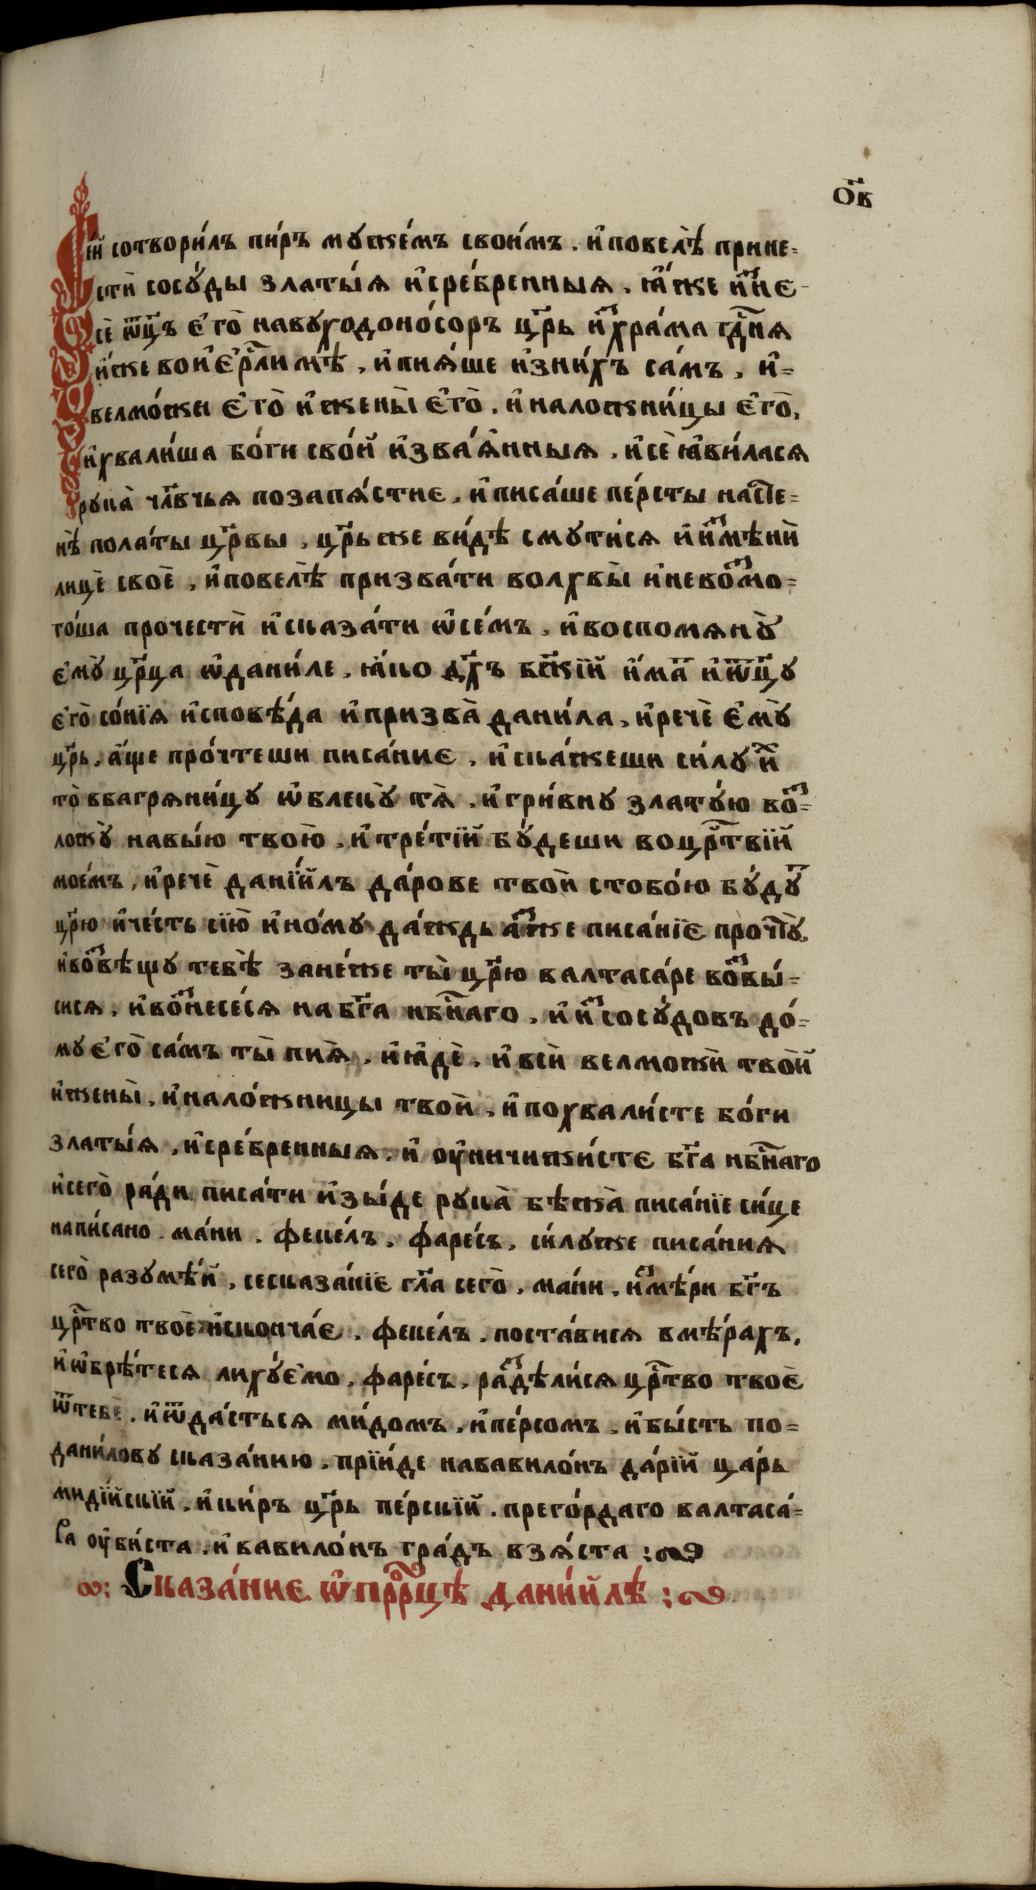 ѻ҃в
Сі́й сотвори́лъ пи́ръ мꙋже́мъ свои́мъ. и҆ повелѣ̀ прине-
стѝ сосꙋ́ды златы́ѧ и҆ сре́бренныѧ, ꙗ҆́же и҆знє-
сѐ ѿц҃ъ є҆гѡ̀ навꙋходоно́соръ цр҃ь и҆з̾ хра́ма гд҃нѧ
и҆́же во и҆єрⷭ҇ли́мѣ, и҆ пиѧ́ше и҆з̾ ни́хъ са́мъ, и҆-
велмо́жи є҆гѡ̀ и҆ жены̀ є҆гѡ̀, и҆ нало́жницы є҆гѡ̀,
и҆ хвали́ша бо́ги своѝ и҆зваѧ́нныѧ, и҆ сѐ ꙗ҆ви́ласѧ
рꙋка̀ чл҃вчьѧ по запѧ́стиє, и҆ писа́ше пе́рсты на сте-
нѣ̀ пола́ты цр҃вы, цр҃ь же ви́дѣ смꙋти́сѧ и҆ и҆змѣнѝ
лицѐ своѐ, и҆ повелѣ̀ призва́ти волхвы̀ и҆ не возмо-
го́ша прочестѝ и҆ сказа́ти ѡ҆ се́мъ, и҆ воспомѧнꙋ̀
є҆мꙋ̀ цр҃ца ѡ҆ дани́ле, ꙗ҆́ко дх҃ъ бж҃їй и҆́мать и҆ ѿцꙋ̀
є҆гѡ̀ со́нїѧ и҆споѣ́да и҆ призва̀ дани́ла, и҆ речѐ є҆мꙋ̀
цр҃ь, а҆́ще про́чтеши писа́ниє, и҆ ска́жеши си́лꙋ и҆х̾
то̀ в багрѧни́цꙋ ѡ҆блекꙋ̀ тѧ̀, и҆ гри́внꙋ златꙋ́ю воз-
ложꙋ̀ на вы́ю твою̀, и҆ тре́тїй бꙋ́деши во црⷭ҇твїй
мое́мъ, и҆ речѐ данїи́лъ да́рове твоѝ с тобо́ю бꙋ́дꙋт
цр҃ю и҆ че́сть сїю̀ и҆но́мꙋ да́ждь а҆́з же писа́нїє прочтꙋ̀,
и҆ возвѣщꙋ̀ тебѣ̀ зане́же ты̀ цр҃ю валтаса́ре возвы́-
сисѧ, и҆ вознесе́сѧ на бг҃а нбⷭ҇наго, и҆ и҆з̾ сосꙋ́довъ до́-
мꙋ є҆гѡ̀ са́мъ ты̀ пиѧ̀, и҆ ꙗ҆дѐ, и҆ всѝ велможѝ твоѝ
и҆ жены̀, и҆ нало́жницы твоѝ, и҆ похвали́сте бо́ги
златы́ѧ, и҆ сре́бренныѧ, и҆ ѹ҆ничижи́стє бг҃а нбⷭ҇наго
и҆ сегѡ̀ ра́ди писа́ти и҆зы́де рꙋка̀ бѣжа̀ писа́нїе си́це
напи́сано. ма́ни. феке́лъ. фаре́съ, си́лꙋ же писа́ниѧ
сегѡ̀ разꙋмѣ́й, се сказа́нїє гл҃а сегѡ̀, ма́ни, и҆змѣ́ри бг҃ъ
црⷭ҇тво твоѐ и҆ сконча́є. феке́лъ. поста́висѧ в мѣ́рахъ,
и҆ ѡ҆брѣ́тесѧ лихꙋ́ємо, фаре́съ, раздѣли́сѧ црⷭ҇тво твоє̀
ѿ тебѐ, и҆ ѿда́стьсѧ ми́домъ, и҆ пе́рсомъ, и҆ бы́сть по-
дани́ловꙋ сказа́нию, прїи́де на вавило́нъ да́рїй ца́рь
миді́йскїй, и҆ ки́ръ цр҃ь пе́рскїй. прего́рдаго валтаса́-
ра ѹ҆би́ста, и҆ вавило́нъ гра́дъ взѧ́ста :~
Сказа́ниє ѡ҆ прⷪ҇рцѣ дани́йлѣ :~